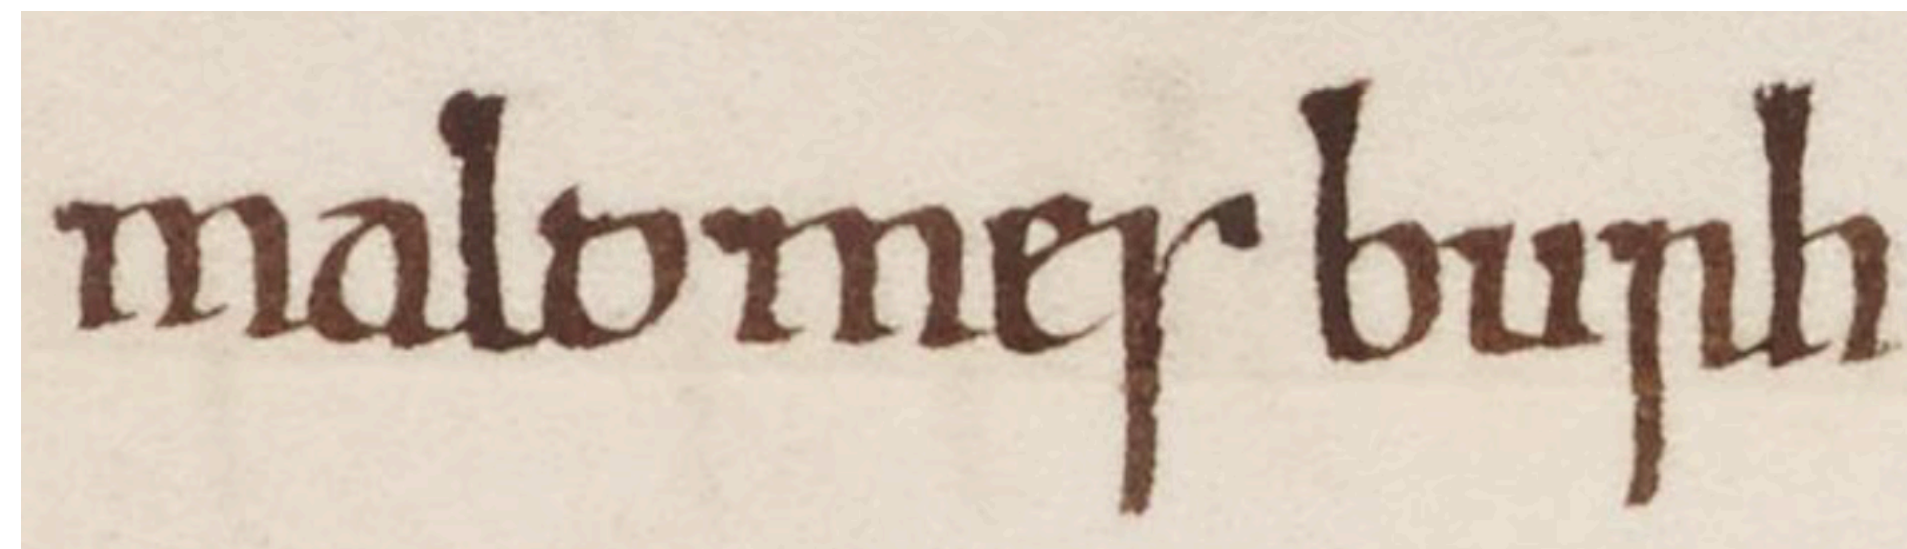 maldmes burh